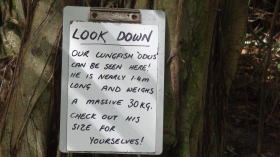 LOOK DOWN
OUR LUNGFISH 'ODUS'
CAN BE SEEN HERE!
HE IS NEARLY 1.4m
LONG AND WEIGHS
A MASSIVE 30KG.
CHECK OUT HIS
SIZE FOR
YOURSELVES!